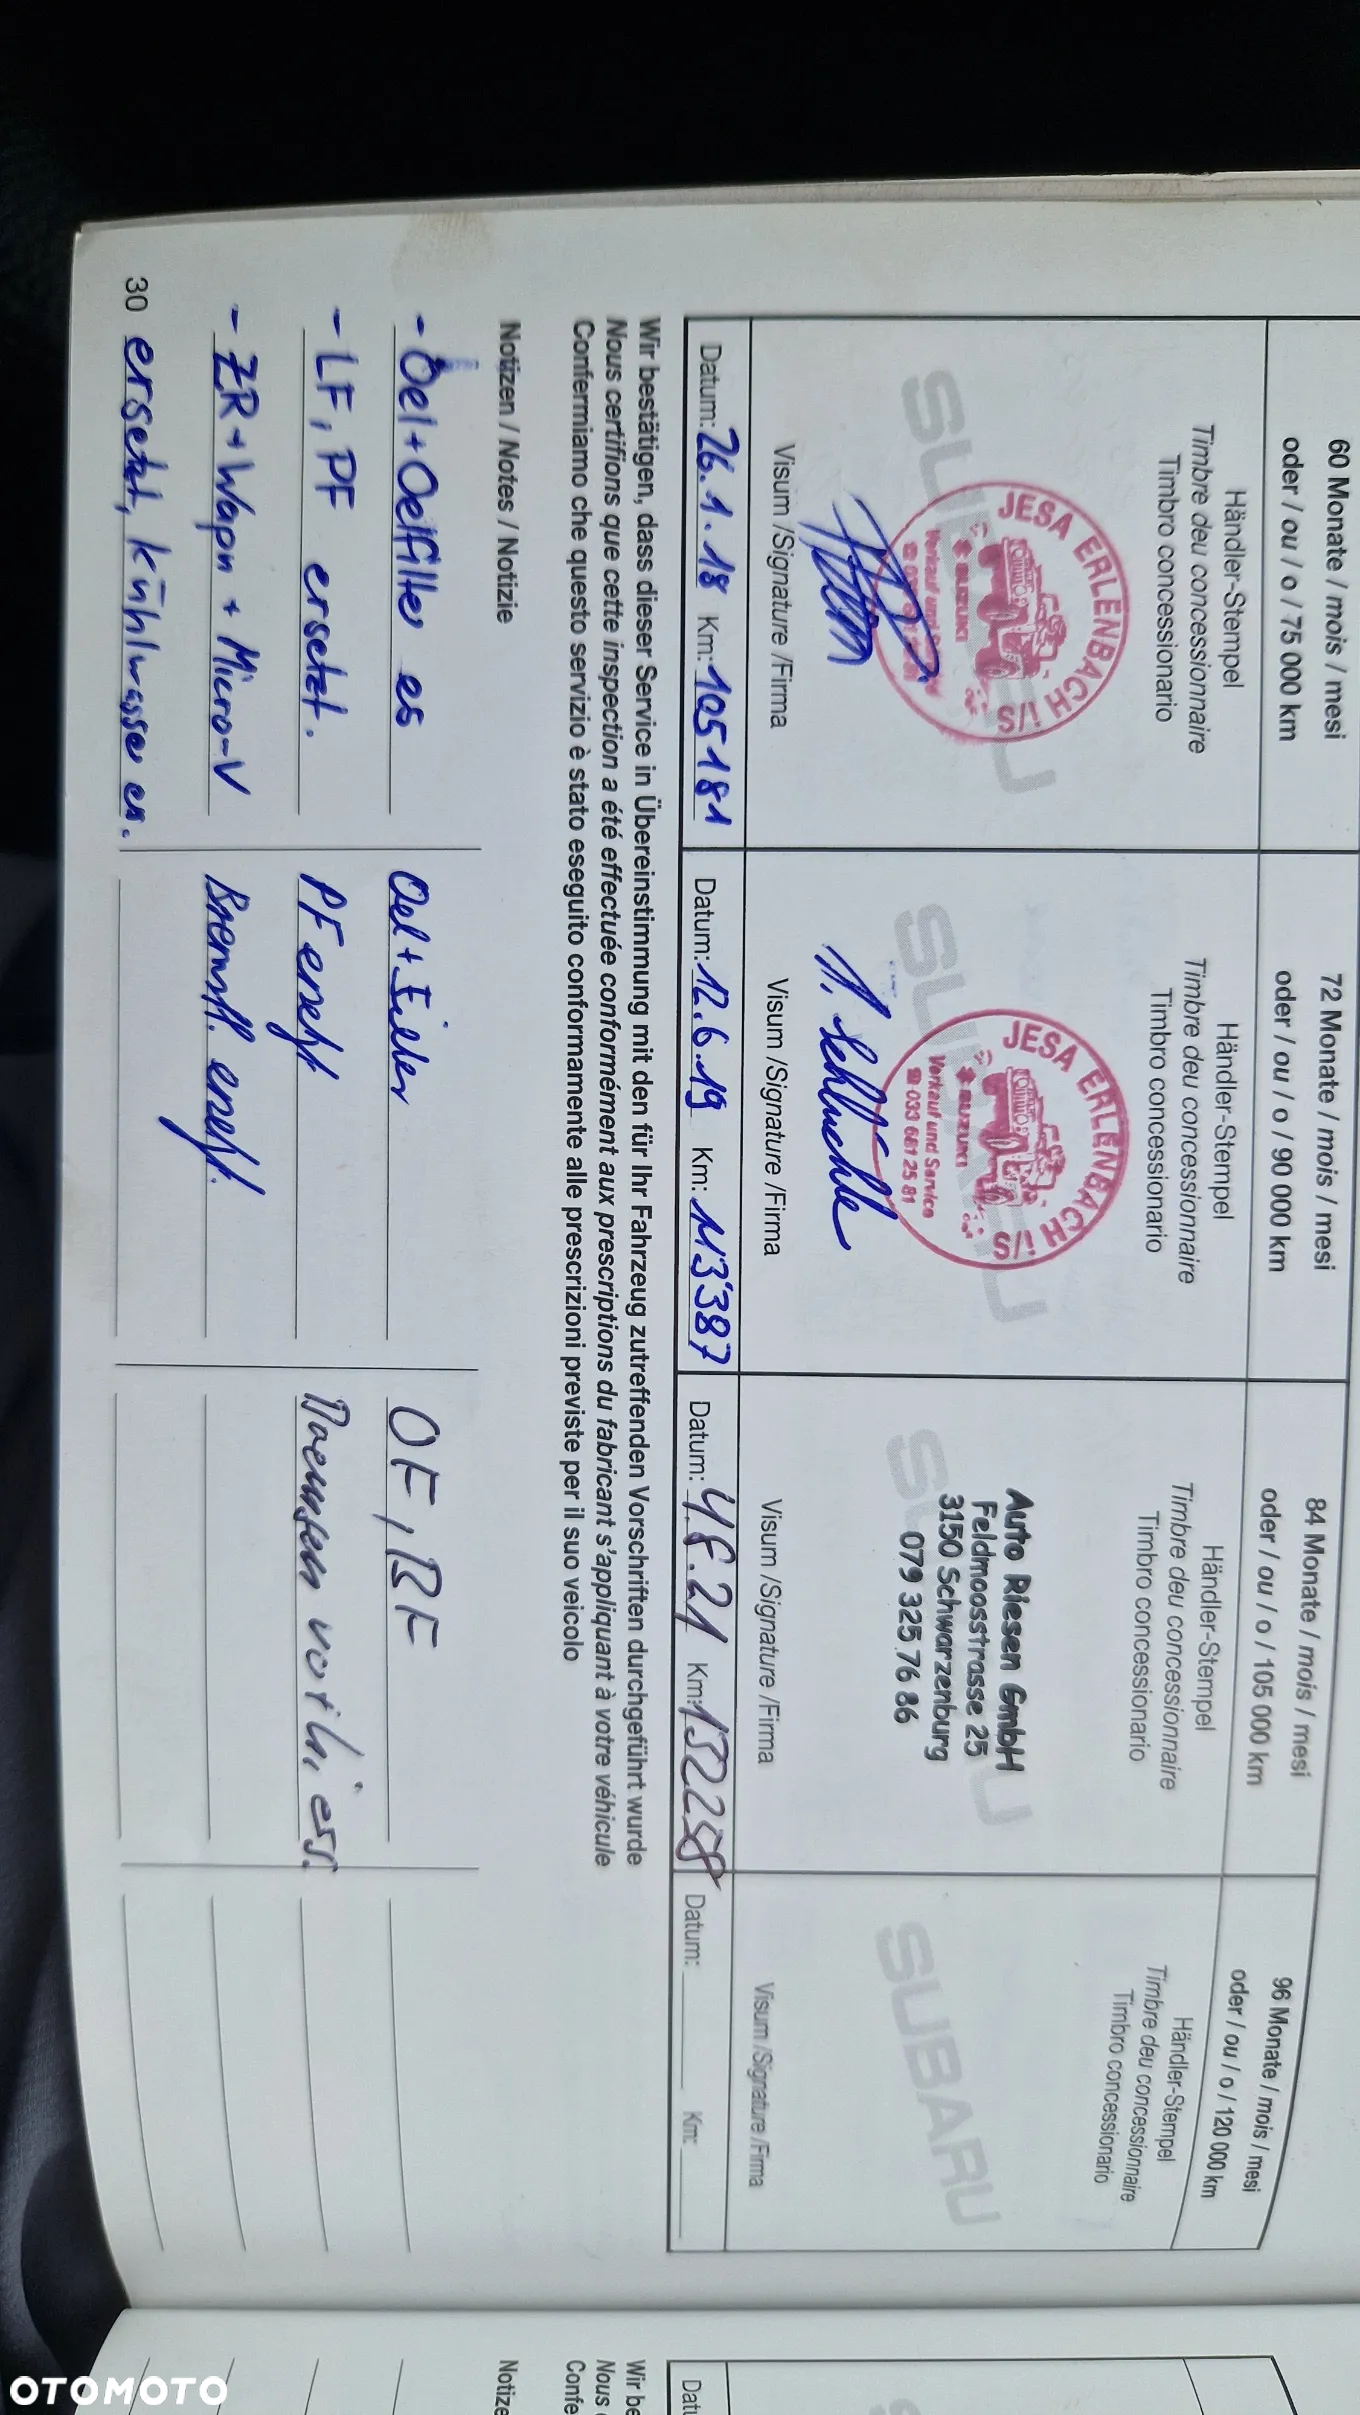 60 Monate / mois / mesi
oder / ou / o / 75 000 km
Händler-Stempel
Timbre deu concessionnaire
Timbro concessionario
SU
JESA ERLENBACH i/S
SUZUKI
Verkauf und
Visum /Signature /Firma
Datum: 26.1.18 Km: 105181
72 Monate / mois / mesi
oder / ou / o / 90 000 km
Händler-Stempel
Timbre deu concessionnaire
Timbro concessionario
JESA ERLENBACH i/S
SUZUKI
Verkauf und Service
☎ 033 681 25 81
Visum /Signature /Firma
Datum: 12.6.19 Km: 113'387
84 Monate / mois / mesi
oder / ou / o / 105 000 km
Händler-Stempel
Timbre deu concessionnaire
Timbro concessionario
Auto Riesen GmbH
Feldmoosstrasse 25
3150 Schwarzenburg
079 325 76 86
Visum /Signature /Firma
Datum: 4.8.21 Km: 132258
96 Monate / mois / mesi
oder / ou / o / 120 000 km
Händler-Stempel
Timbre deu concessionnaire
Timbro concessionario
SUBARU
Visum /Signature /Firma
Datum: Km:
Wir bestätigen, dass dieser Service in Übereinstimmung mit den für Ihr Fahrzeug zutreffenden Vorschriften durchgeführt wurde
Nous certifions que cette inspection a été effectuée conformément aux prescriptions du fabricant s'appliquant à votre véhicule
Confermiamo che questo servizio è stato eseguito conformamente alle prescrizioni previste per il suo veicolo
Notizen / Notes / Notizie
- Oel + Oelfilter es
- LF, PF ersetzt.
- ZR + Wapu + Micro-V
ersetzt, kühlwasser es.
Oel + Filter
PF ersetzt
Bremsfl. ersetzt.
OF, BF
30
Wir be
Nous
Confe
Notize
Datu
OTOMOTO